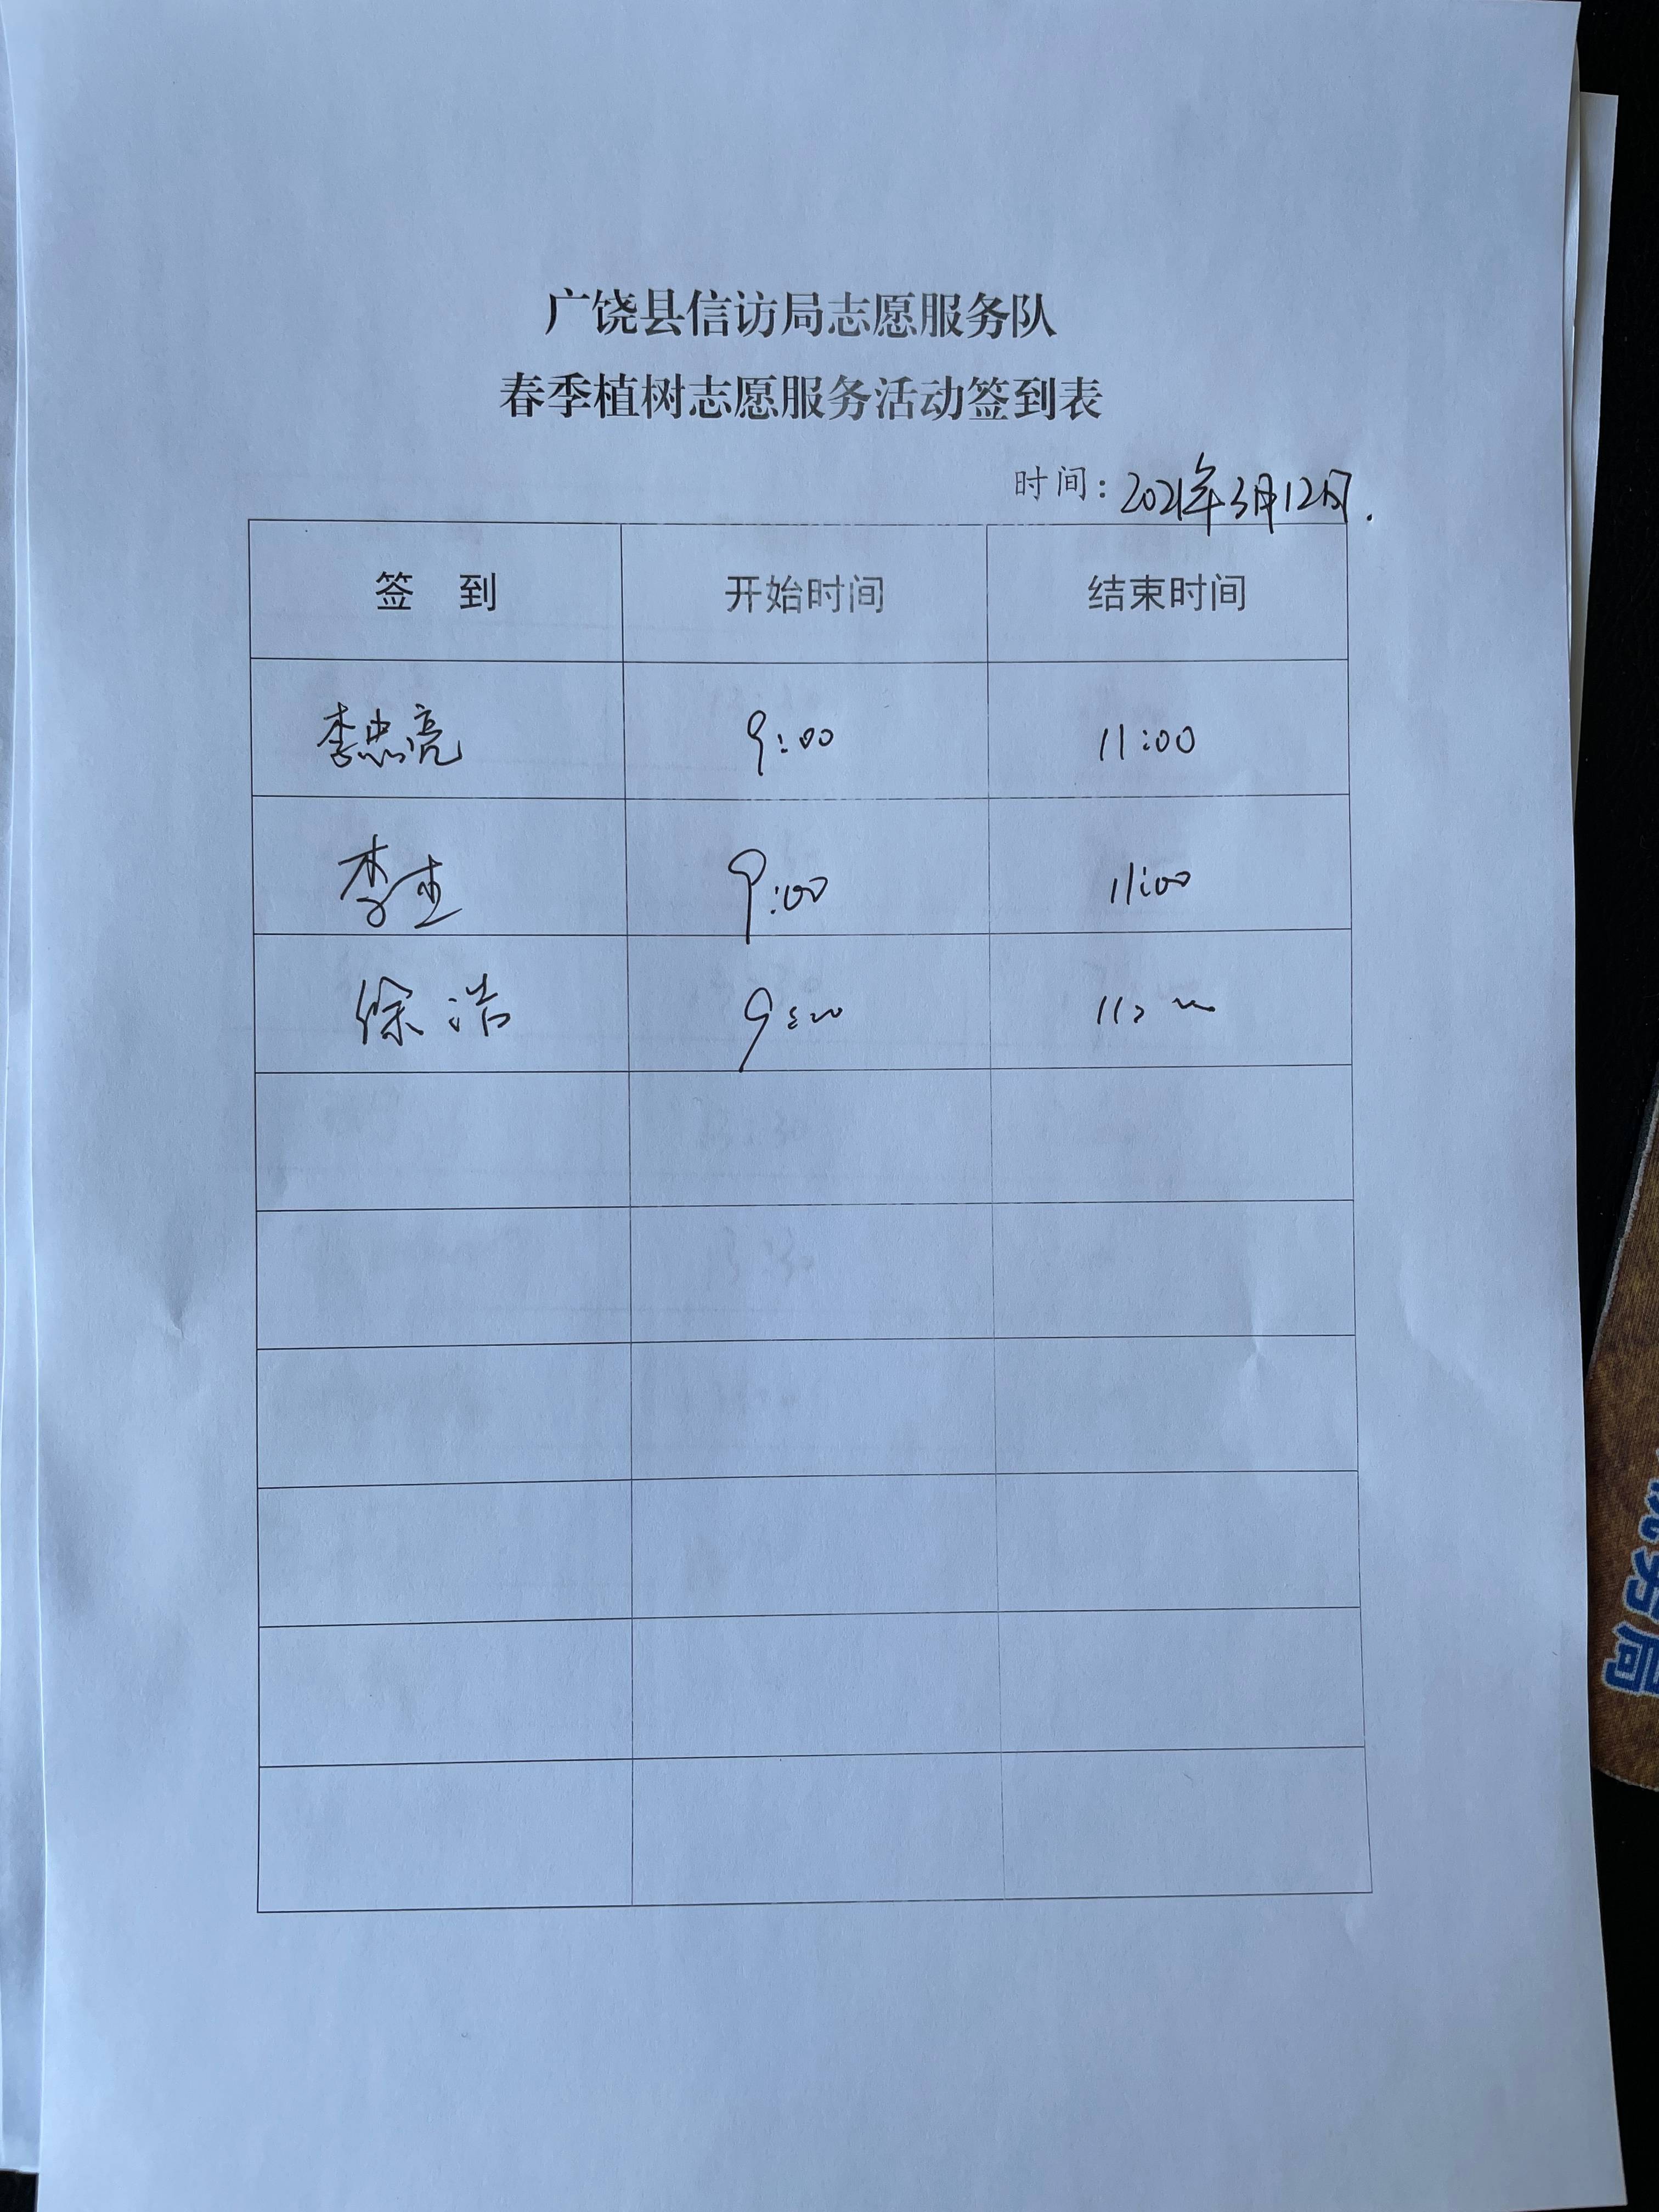 广饶县信访局志愿服务队
春季植树志愿服务活动签到表
时间：2021年3月12日.
签 到 开始时间 结束时间
李忠亮 9:00 11:00
李 9:00 11:00
徐浩 9:00 11:00
务局